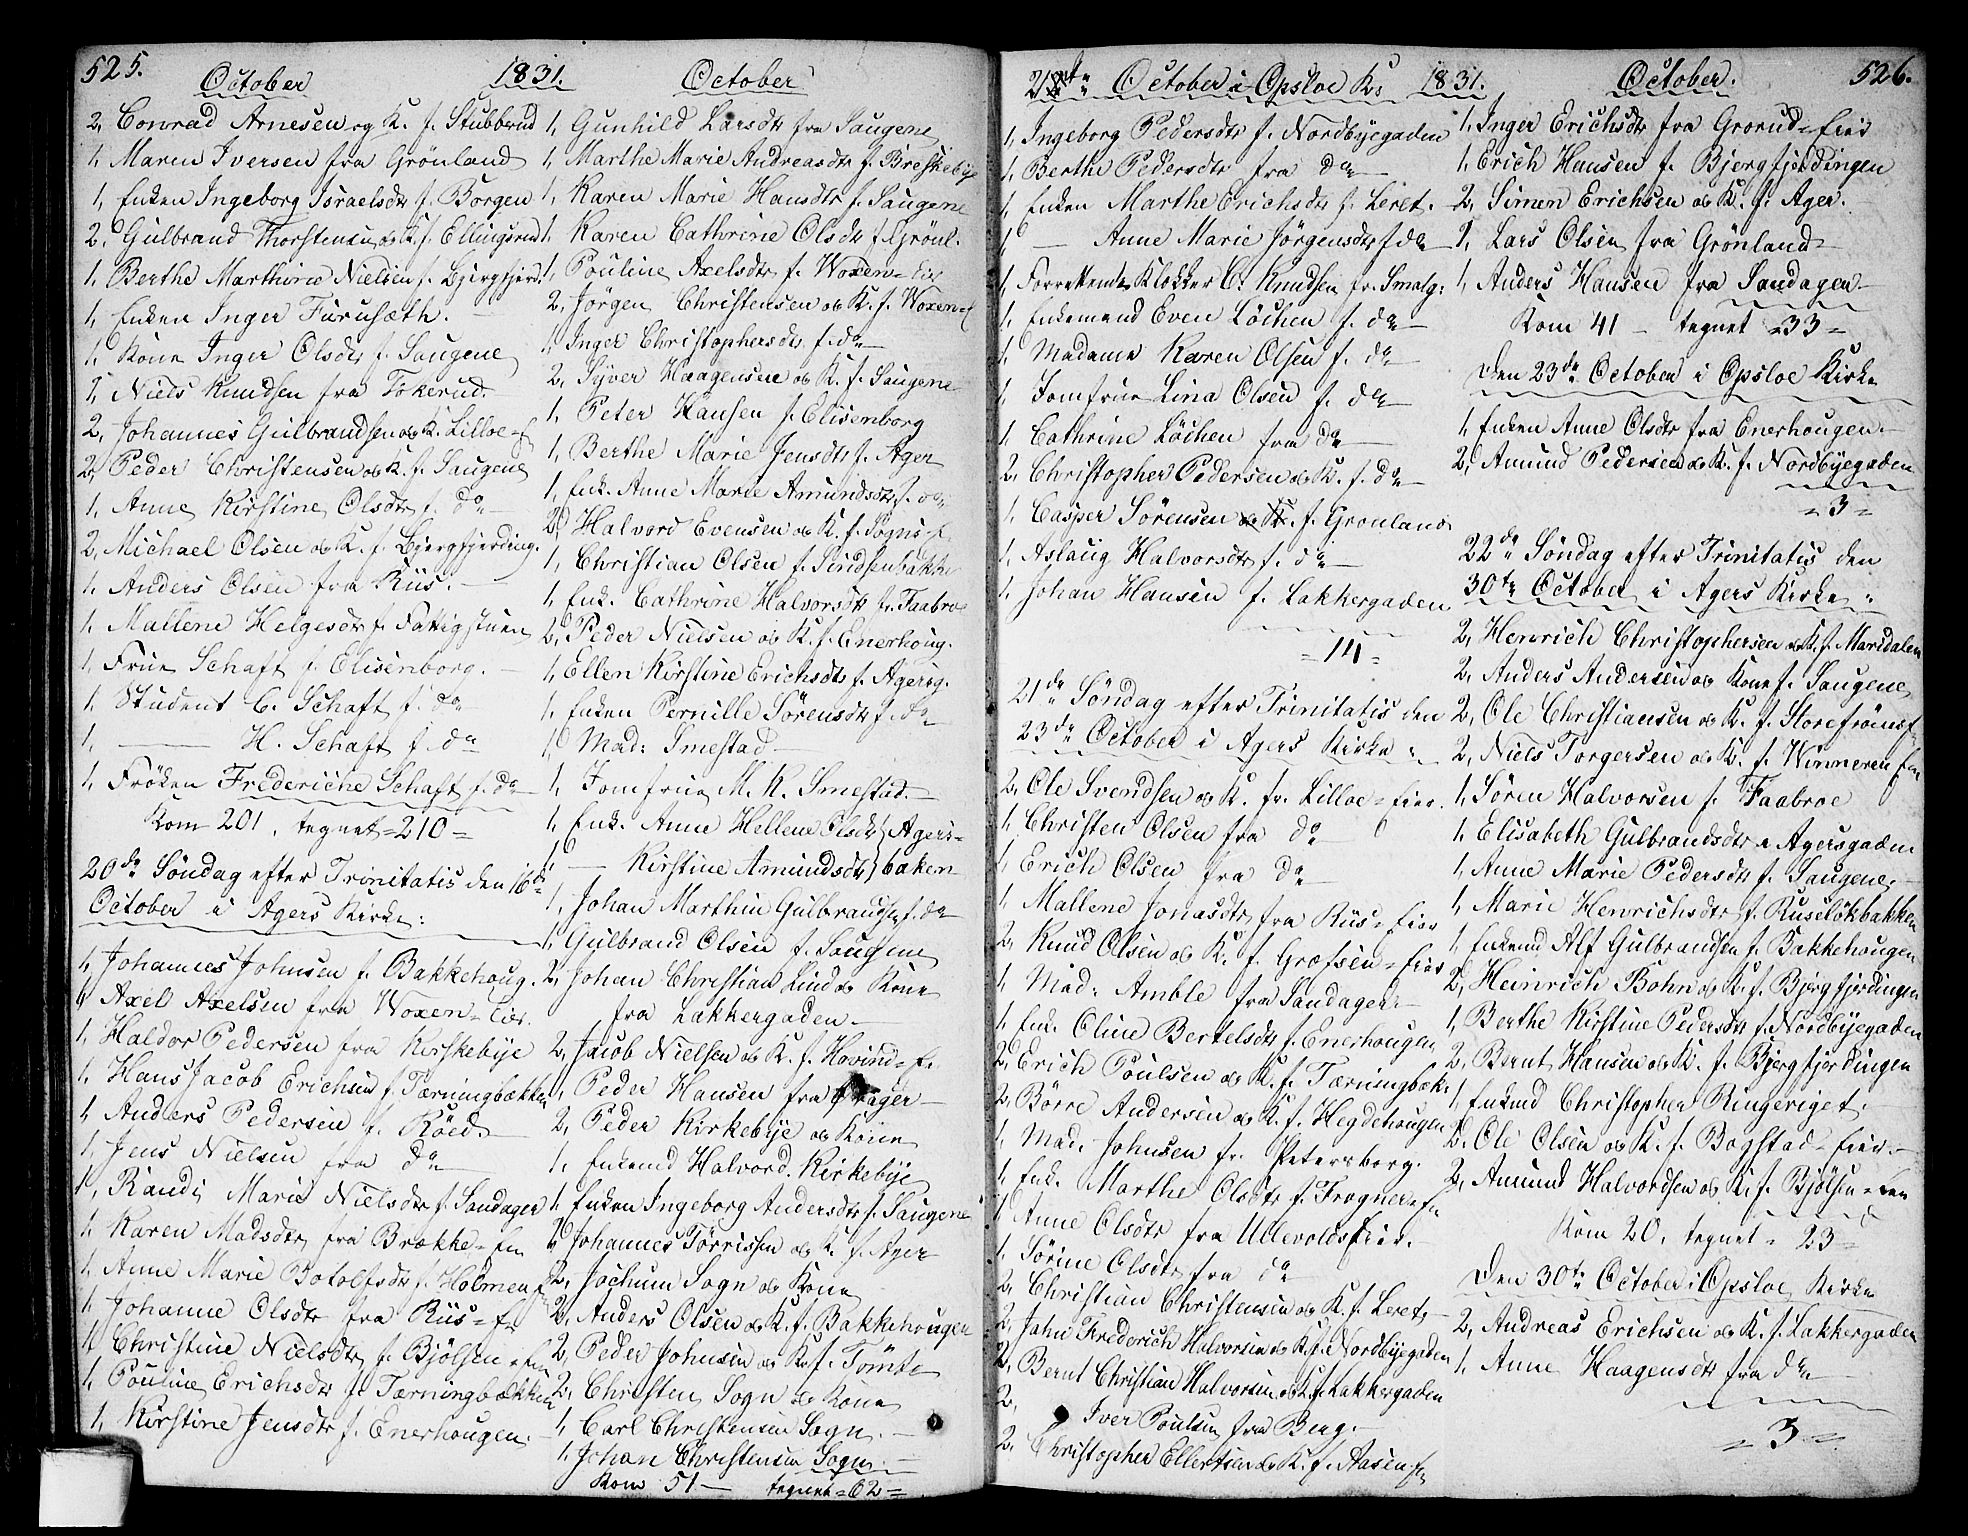 525.
October
1831.
October
2, Conrad Arnesen og K. f. Stubberud
1, Maren Iversen fra Grönland
1, Enken Ingeborg Israelsdtr f. Borgen
2, Gulbrand Thorstensen og K. f. Ellingsrud
1, Berthe Marthine Nielsen f. Bjergfjerd.
1, Enken Inger Furusæth.
1, Kone Inger Olsdtr f. Saugene
1, Niels Knudsen fra Tokerud.
2, Johannes Gulbrandsen og K. Lilloe-E
2, Peder Christensen og K. f. Saugene
1, Anne Kirstine Olsdtr f. do
2, Michael Olsen og K. f. Bjergfjerding.
1, Anders Olsen fra Riis.
1, Mallene Helgesdtr f. Fattigstuen
1, Frue Schaft f. Elisenborg.
1, Student C. Schaft f. do
1, — H. Schaft f. do
1, Fröken Frederiche Schaft f. do
Kom 201, tegnet = 210 =
20de Söndag efter Trinitatis den 16de
October i Agers Kirke:
1, Johannes Johnsen f. Bakkehoug.
1, Axel Axelsen fra Woxen-Eier.
1, Haldor Pedersen fra Kirkebye
1, Hans Jacob Erichsen f. Tærningbækken
1, Anders Pedersen f. Röed
1, Jens Nielsen fra do
1, Randi Marie Nielsdtr f. Sandager
1, Karen Madsdtr fra Brække-Ein
1, Anne Marie Botolfsdtr f. Holmen
1, Johanne Olsdtr fra Riis-E
1, Christine Nielsdtr f. Bjölsen-Ein
1, Pouline Erichsdtr f. Tærningbækken
1, Kirstine Jensdtr f. Enerhougen.
1, Gunhild Larsdtr fra Saugene
1, Marthe Marie Andreasdtr f. Breskebye
1, Karen Marie Hansdtr f. Saugene
1, Karen Cathrine Olsdtr f. Grönl.
1, Pouline Axelsdtr f. Woxen-Eie
2, Jörgen Christensen og K. f. Woxen-E
1, Inger Christophersdtr f. do
2, Syver Haagensen og K. f. Saugene
1, Peter Hansen f. Elisenborg
1, Berthe Marie Jensdtr f. Ager
1, Enk. Anne Marie Amundsdtr f. do
2, Halvord Evensen og K. f. Sogns-E
1, Christian Olsen f. Sindsenbakke
1, Enk. Cathrine Halvorsdtr fr. Faabroe
2, Peder Nielsen og K. f. Enerhoug.
1, Ellen Kirstine Erichsdtr f. Agersg.
1, Enken Pernille Sörensdtr f. do
1, Mad: Smestad
1, Jomfrue M. K. Smestad.
1, Enk. Anne Hellene Olsdtr } Agers-
1, — Kirstine Amundsdtr } baken
1, Johan Marthin Gulbrandsen f. do
1, Gulbrand Olsen f. Saugene
2, Johan Christian Lind og Kone
fra Lakkergaden
2, Jacob Nielsen og K. f. Hovind-E.
1, Peder Hansen fra ager
2, Peder Kirkebye og Kone
1, Enkemd Halvord Kirkebye
1, Enken Ingeborg Andersdtr f. Saugene
2, Johannes Törrisen og K. f. Ager
2, Jochum Sogn og Kone
2, Anders Olsen og K. f. Bakkehougen
2, Peder Johnsen og K. f. Tömte
2, Christen Sogn og Kone
1, Carl Christensen Sogn.
1, Johan Christensen Sogn.
Kom 51 — tegnet = 62 =
21de October i Opsloe K: 1831.
October.
526.
1, Ingeborg Pedersdtr f. Nordbyegaden
1, Berthe Pedersdtr fra do
1, Enken Marthe Erichsdtr f. Leret.
1, — Anne Marie Jörgensdtr f. do
1, Forrettende Klokker C. Knudsen fr. Smalg:
1, Enkemand Even Löchen f. do
1, Madame Karen Olsen f. do
1, Jomfrue Lina Olsen f. do
1, Cathrine Löchen fra do
2, Christopher Pedersen og K. f. do
1, Casper Sörensen og K. f. Grönland
1, Aslaug Halvorsdtr f. do
1, Johan Hansen f. Lakkergaden
= 14 =
21de Söndag efter Trinitatis den
23de October i Agers Kirke:
2, Ole Svendsen og K. fr. Lilloe-Eier.
1, Christen Olsen fra do
1, Erich Olsen fra do
1, Mallene Jonasdtr fra Riis-Eier
2, Knud Olsen og K. f. Grefsen-Eier
1, Mad: Amble fra Sandager
1, Enk. Oline Bertelsdtr f. Enerhougen
2, Erich Poulsen og K. f. Tærningbæk.
2, Börre Andersen og K. f. Hegdehougen
1, Mad. Johnsen fr. Petersborg.
1, Enk. Marthe Olsdtr f. Frogner-En
1, Anne Olsdtr fra Ullevolds Eier.
1, Sörine Olsdtr fra do
2, Christian Christensen og K. f. Leret
2, Jahn Frederich Halvorsen og K. f. Nordbyegaden
2, Bernt Christian Halvorsen og K. f. Lakkergaden
2, Iver Poulsen fra Berg.
2, Christopher Ellertsen og K. f. Aasen-En
1, Inger Erichsdtr fra Grorud-Eier
1, Erich Hansen f. Bjergfjerdingen
2, Simen Erichsen og K. f. Ager.
1, Lars Olsen fra Grönland
1, Anders Hansen fra Sandagen
Kom 41 — tegnet = 33 =
Den 23de October i Opsloe Kirke
1, Enken Anne Olsdtr fra Enerhougen.
2, Amund Pedersen og K. f. Nordbyegaden
= 3 =
22de Söndag efter Trinitatis den
30te October i Agers Kirke:
2, Henrich Christophersen og K. f. Maridalen
2, Anders Andersen og Kone f. Saugene
2, Ole Christiansen og K. f. Storefröens E
2, Niels Torgersen og K. f. Winneren Ein
1, Sören Halvorsen f. Faabroe
1, Elisabeth Gulbrandsdtr Agersgaden
1, Anne Marie Pedersdtr f. Saugene.
1, Marie Henrichsdtr f. Ruselökbakken
1, Enkemd Alf Gulbrandsen f. Bakkehougen
2, Heinrich Bohn og K. f. Bjergfjerdingen
1, Berthe Kirstine Pedersdtr f. Nordbyegaden
2, Bernt Hansen og K. f. Bjergfjerdingen
1, Enkemd Christopher Ringeriget.
2, Ole Olsen og K. f. Bogstad-Eier.
2, Amund Halvordsen og K. f. Bjölsen-Eier
Kom 20, tegnet = 23 =
Den 30te October i Opsloe Kirke
2, Andreas Erichsen og K. f. Lakkergaden
1, Anne Haagensdtr fra do
= 3 =